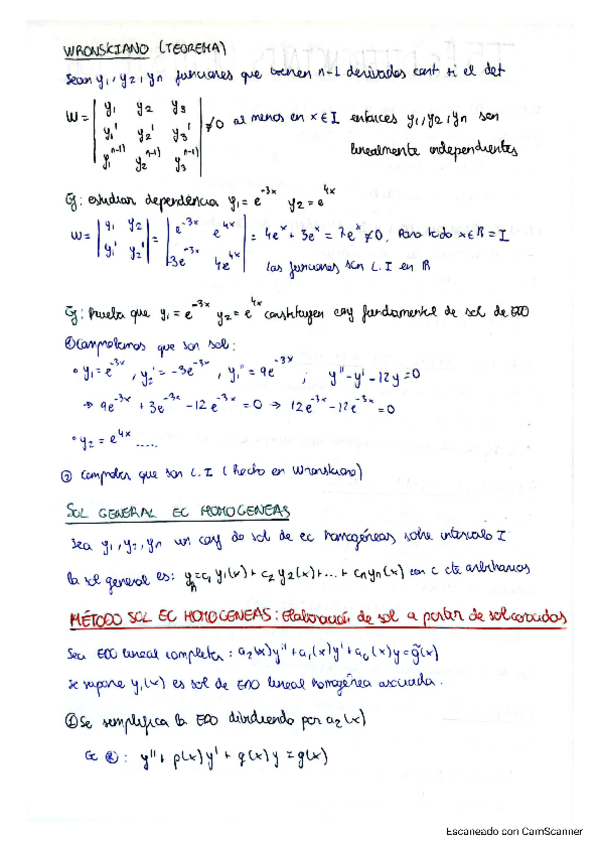 WRONSKIANO (TEOREMA)
Sean y₁, y₂, yn funciones que tienen n-1 derivadas cont si el det
W = | y₁ y₂ y₃ |
| y₁' y₂' y₃' | ≠0 al menos en x∈I entonces y₁, y₂, yn son
| y₁ⁿ⁻¹⁾ y₂ⁿ⁻¹⁾ y₃ⁿ⁻¹⁾ | linealmente independientes
Ej: estudiar dependencia y₁ = e⁻³ˣ y₂ = e⁴ˣ
W = | y₁ y₂ | = | e⁻³ˣ e⁴ˣ | = 4eˣ + 3eˣ = 7eˣ ≠ 0. Para todo x∈ℝ = I
| y₁' y₂' | | -3e⁻³ˣ 4e⁴ˣ | Las funciones son L.I en ℝ
Ej: Prueba que y₁ = e⁻³ˣ y₂ = e⁴ˣ constituyen conj fundamental de sol de EDO
① Comprobamos que son sol:
• y₁ = e⁻³ˣ, y₂' = -3e⁻³ˣ, y₁'' = 9e⁻³ˣ ; y'' - y' - 12y = 0
→ 9e⁻³ˣ + 3e⁻³ˣ - 12e⁻³ˣ = 0 → 12e⁻³ˣ - 12e⁻³ˣ = 0
• y₂ = e⁴ˣ .....
② Comprobar que son L.I (hecho en Wronskiano)
SOL GENERAL EC HOMOGENEAS
Sea y₁, y₂, yn un conj de sol de ec homogéneas sobre intervalo I
la sol general es: yₕ = c₁y₁(x) + c₂y₂(x) + ... + cnyn(x) con c cte arbitrarios
MÉTODO SOL EC HOMOGENEAS: Elaboración de sol a partir de sol conocidas
Sea EDO lineal completa: a₂(x)y'' + a₁(x)y' + a₀(x)y = g̃(x)
Se supone y₁(x) es sol de EDO lineal homogénea asociada.
① Se simplifica la EDO dividiendo por a₂(x)
y'' + p(x)y' + q(x)y = g(x)
Escaneado con CamScanner